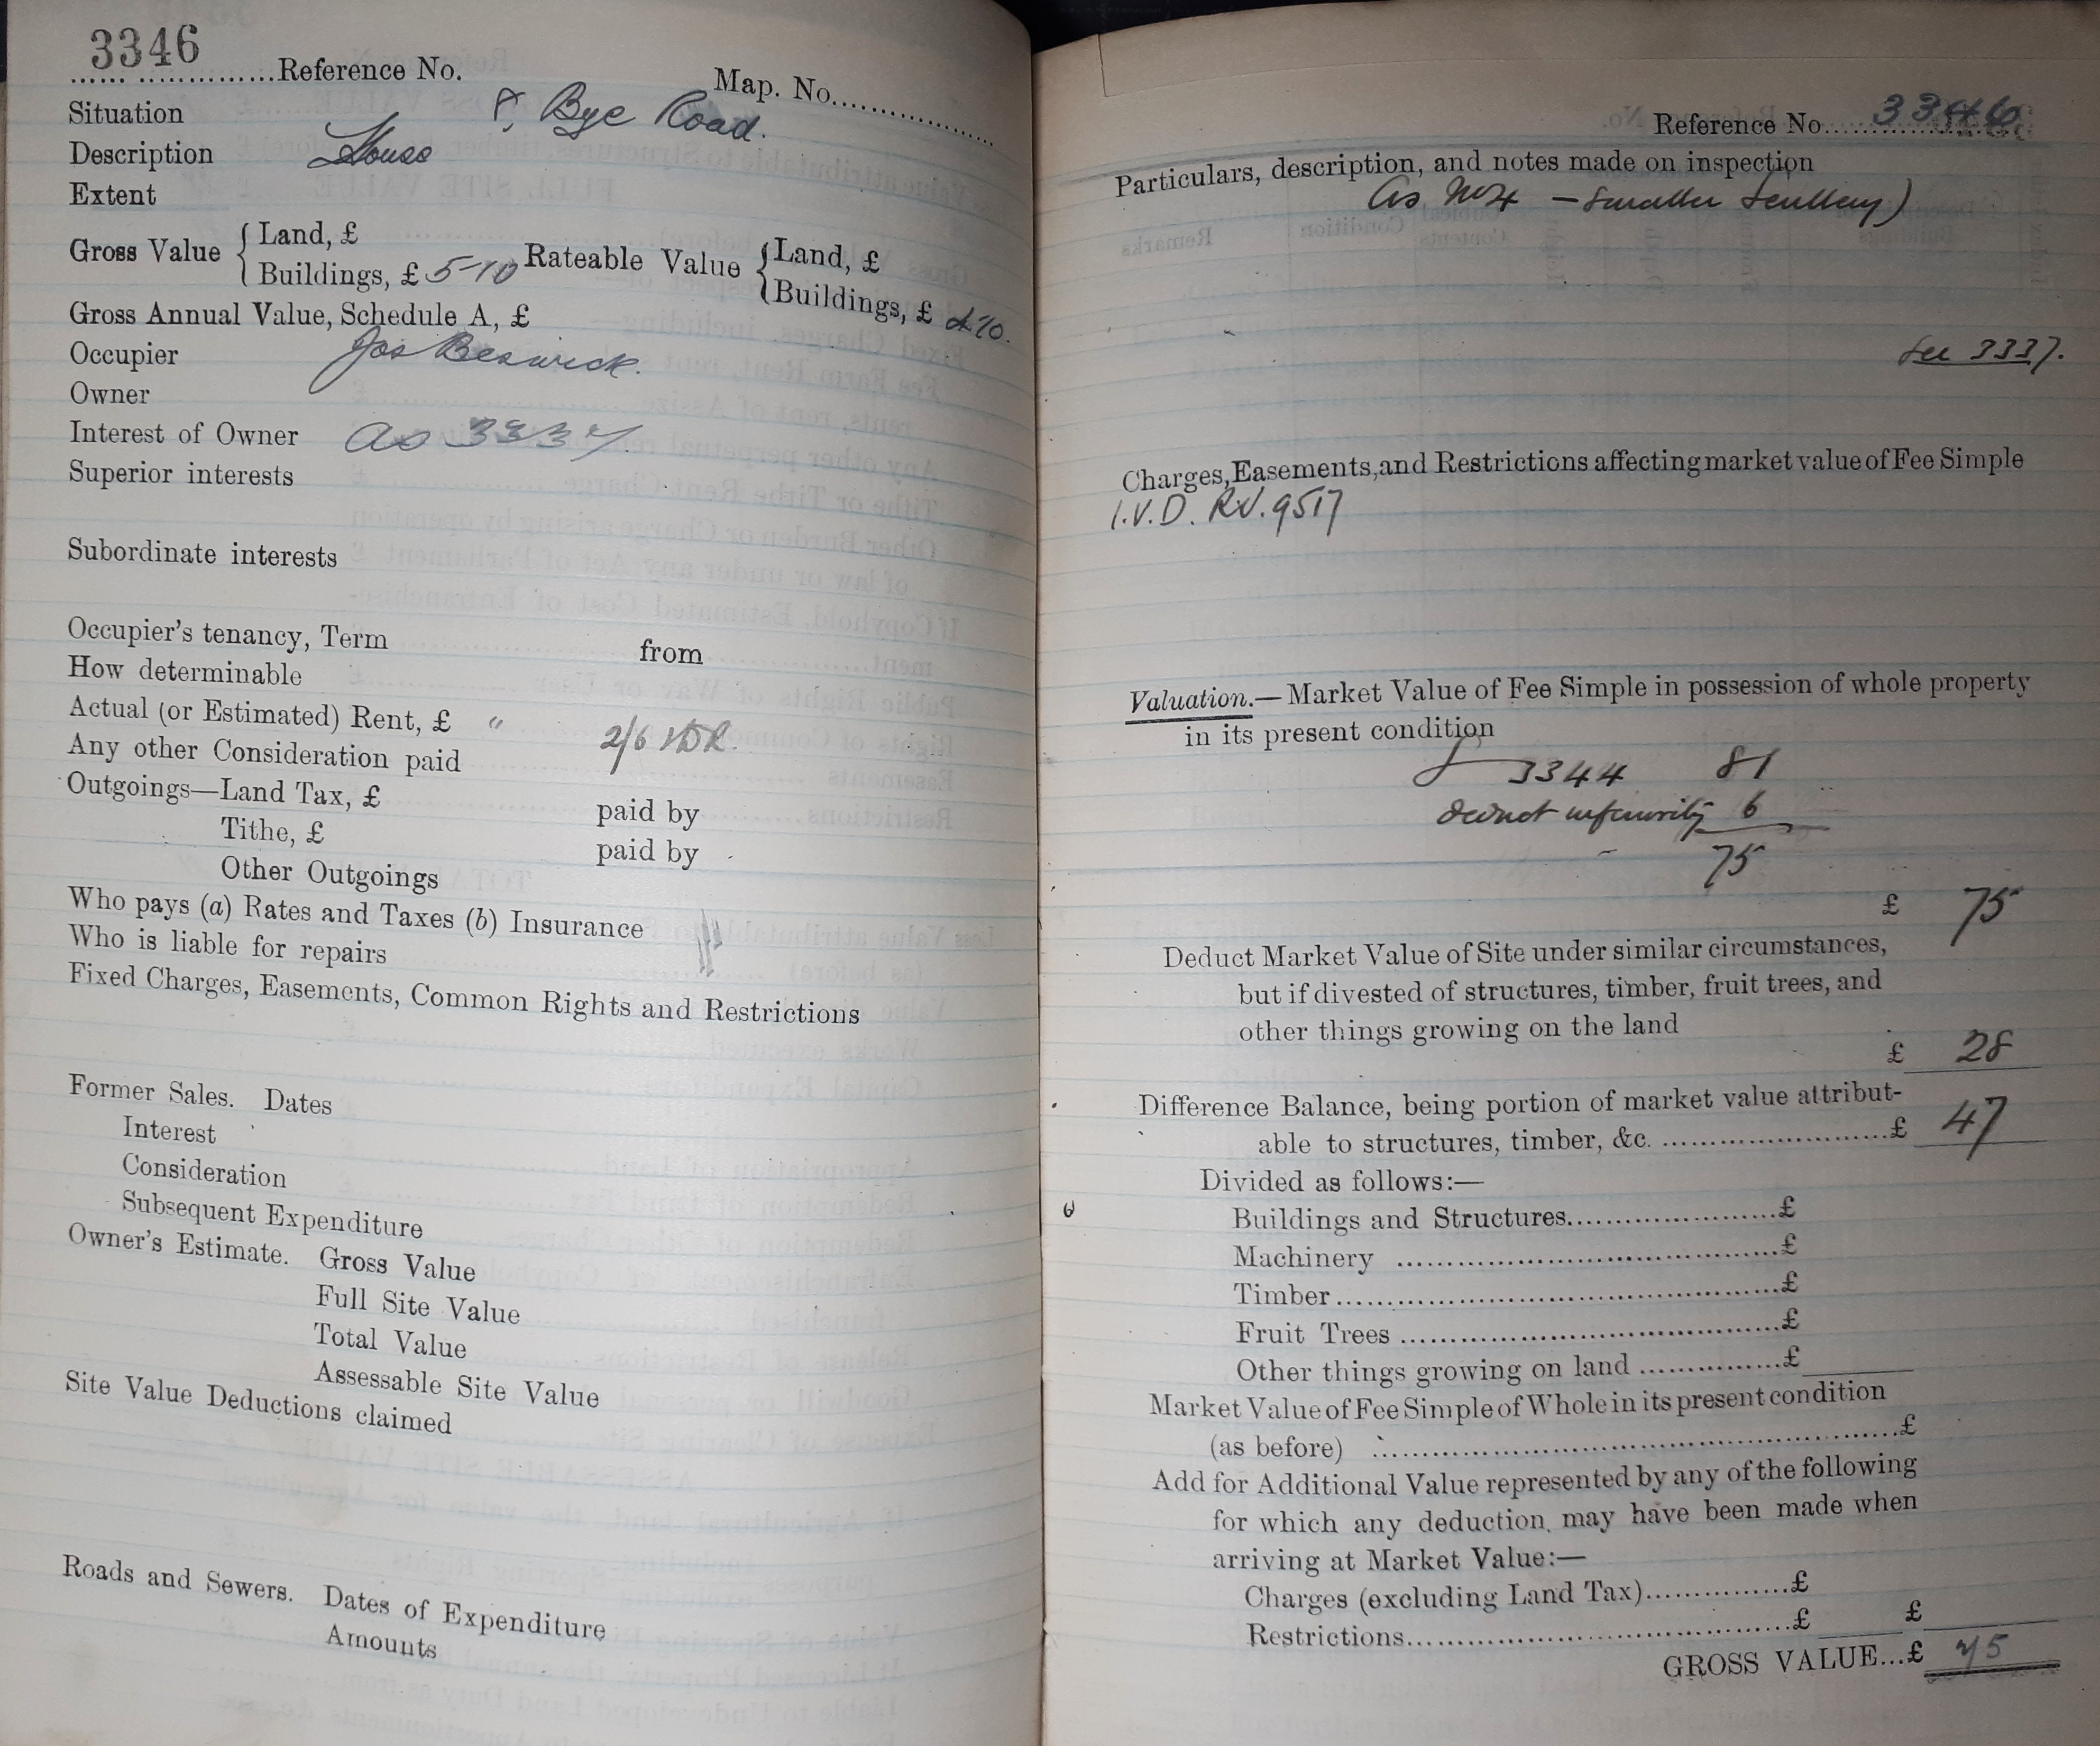 3346
Reference No.
Map. No.
Situation 8, Bye Road.
Description House
Extent
Gross Value { Land, £
Buildings, £ 5-10
Rateable Value { Land, £
Buildings, £ 4-10.
Gross Annual Value, Schedule A, £
Occupier Jos Beswick.
Owner
Interest of Owner as 3337.
Superior interests
Subordinate interests
Occupier's tenancy, Term from
How determinable
Actual (or Estimated) Rent, £ " 2/6
Any other Consideration paid
Outgoings—Land Tax, £ paid by
Tithe, £ paid by
Other Outgoings
Who pays (a) Rates and Taxes (b) Insurance
Who is liable for repairs
Fixed Charges, Easements, Common Rights and Restrictions
Former Sales. Dates
Interest
Consideration
Subsequent Expenditure
Owner's Estimate. Gross Value
Full Site Value
Total Value
Assessable Site Value
Site Value Deductions claimed
Roads and Sewers. Dates of Expenditure
Amounts
Reference No. 3346
Particulars, description, and notes made on inspection
As No 4 — smaller Scullery)
See 3337.
Charges, Easements, and Restrictions affecting market value of Fee Simple
I.V.D. RV. 9517
Valuation.—Market Value of Fee Simple in possession of whole property
in its present condition
3344 81
deduct inferiority 6
75
£ 75
Deduct Market Value of Site under similar circumstances,
but if divested of structures, timber, fruit trees, and
other things growing on the land
£ 28
Difference Balance, being portion of market value attribut-
able to structures, timber, &c. £ 47
Divided as follows:—
Buildings and Structures £
Machinery £
Timber £
Fruit Trees £
Other things growing on land £
Market Value of Fee Simple of Whole in its present condition
(as before) £
Add for Additional Value represented by any of the following
for which any deduction may have been made when
arriving at Market Value:—
Charges (excluding Land Tax) £
Restrictions £ £
GROSS VALUE...£ 75